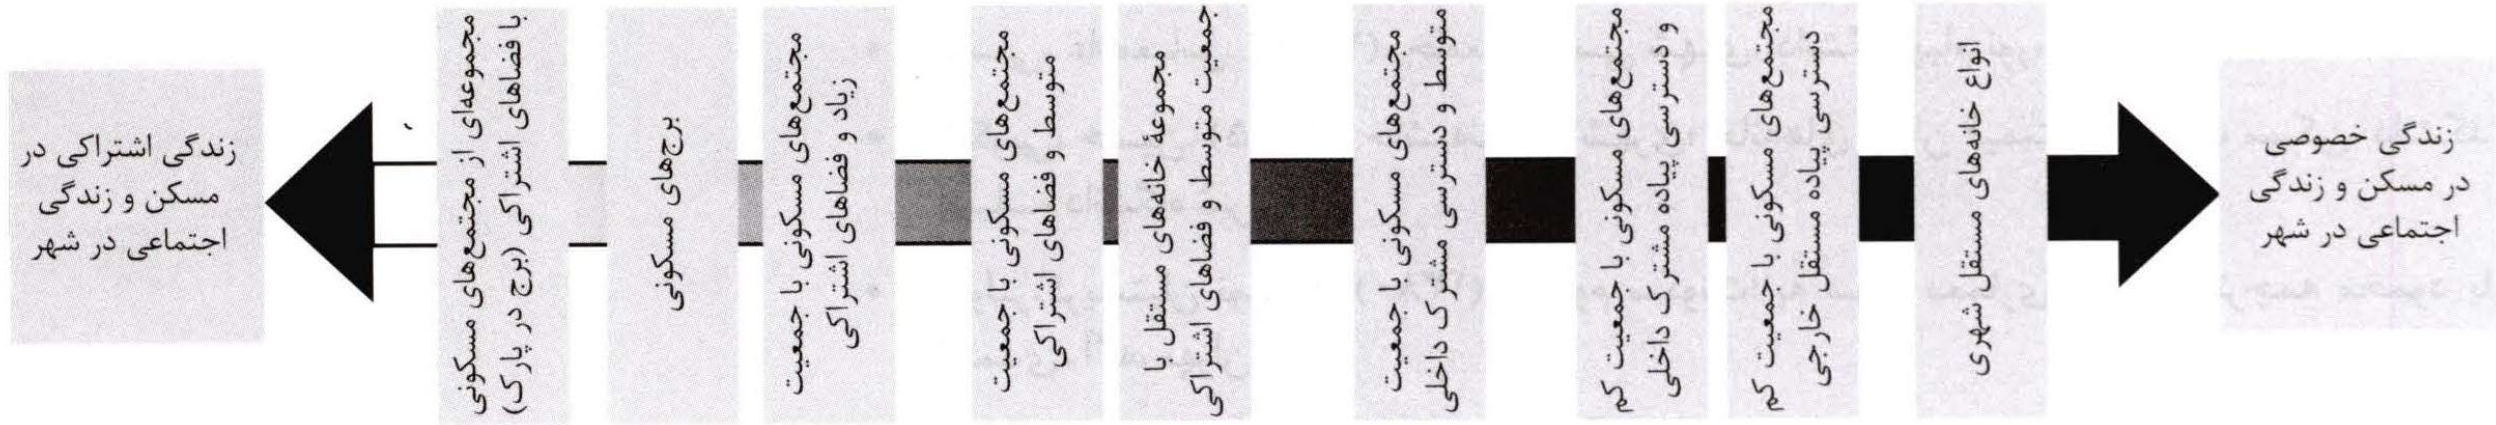 زندگی خصوصی
در مسکن و زندگی
اجتماعی در شهر
انواع خانه‌های مستقل شهری
مجتمع‌های مسکونی با جمعیت کم
دسترسی پیاده مستقل خارجی
مجتمع‌های مسکونی با جمعیت کم
و دسترسی پیاده مشترک داخلی
مجتمع‌های مسکونی با جمعیت
متوسط و دسترسی مشترک داخلی
مجموعهٔ خانه‌های مستقل با
جمعیت متوسط و فضاهای اشتراکی
مجتمع‌های مسکونی با جمعیت
متوسط و فضاهای اشتراکی
مجتمع‌های مسکونی با جمعیت
زیاد و فضاهای اشتراکی
برج‌های مسکونی
مجموعه‌ای از مجتمع‌های مسکونی
با فضاهای اشتراکی (برج در پارک)
زندگی اشتراکی در
مسکن و زندگی
اجتماعی در شهر